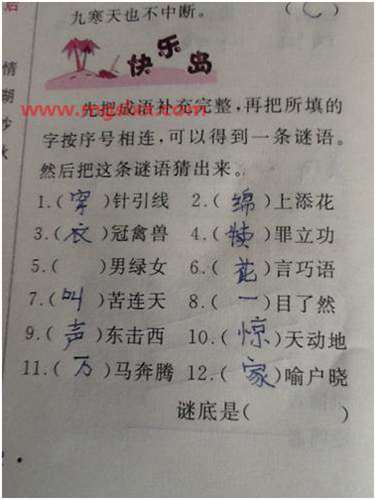 九寒天也不中断。 ( )
快乐岛
先把成语补充完整，再把所填的
字按序号相连，可以得到一条谜语。
然后把这条谜语猜出来。
1.(穿)针引线 2.(绵)上添花
3.(衣)冠禽兽 4.( )罪立功
5.( )男绿女 6.(花)言巧语
7.(叫)苦连天 8.(一)目了然
9.(声)东击西 10.(惊)天动地
11.(万)马奔腾 12.(家)喻户晓
谜底是( )